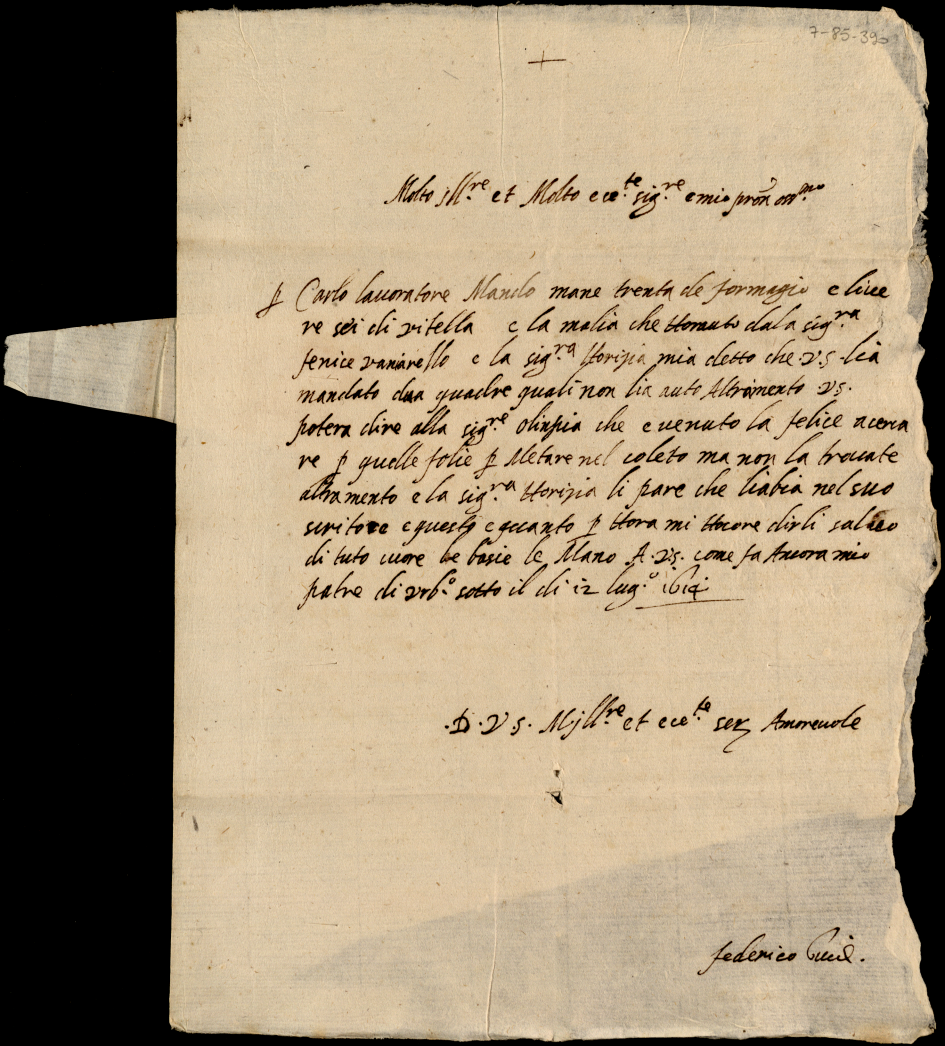 7-85-390
+
Molto Ill.re et Molto ece.te sig.re e mio pron oss.mo
p Carlo lavoratore Mando mane trenta de formagio e live
re sei di vitella e la malia che ttorauto dala sig.ra
fenice e la sig.ra ttorizia mia detto che .v.s. lia
mandato dua quadre quali non lia auto Altramento vs.
potera dire alla sig.re olinpia che e venuto la felice acerca
re p quelle folie p Metare nel coleto ma non la trovate
altramento e la sig.ra ttorizia li pare che liabia nel suo
scritore e questo e quanto p ttora mi ttocore dirli
di tuto cuore le bacie le Mano A .v.s. come fa Ancora mio
patre di urb.o sotto il di 12 lug.o 1614
.D.V.S. M Ill.re et ece.te ser Amorevole
federico